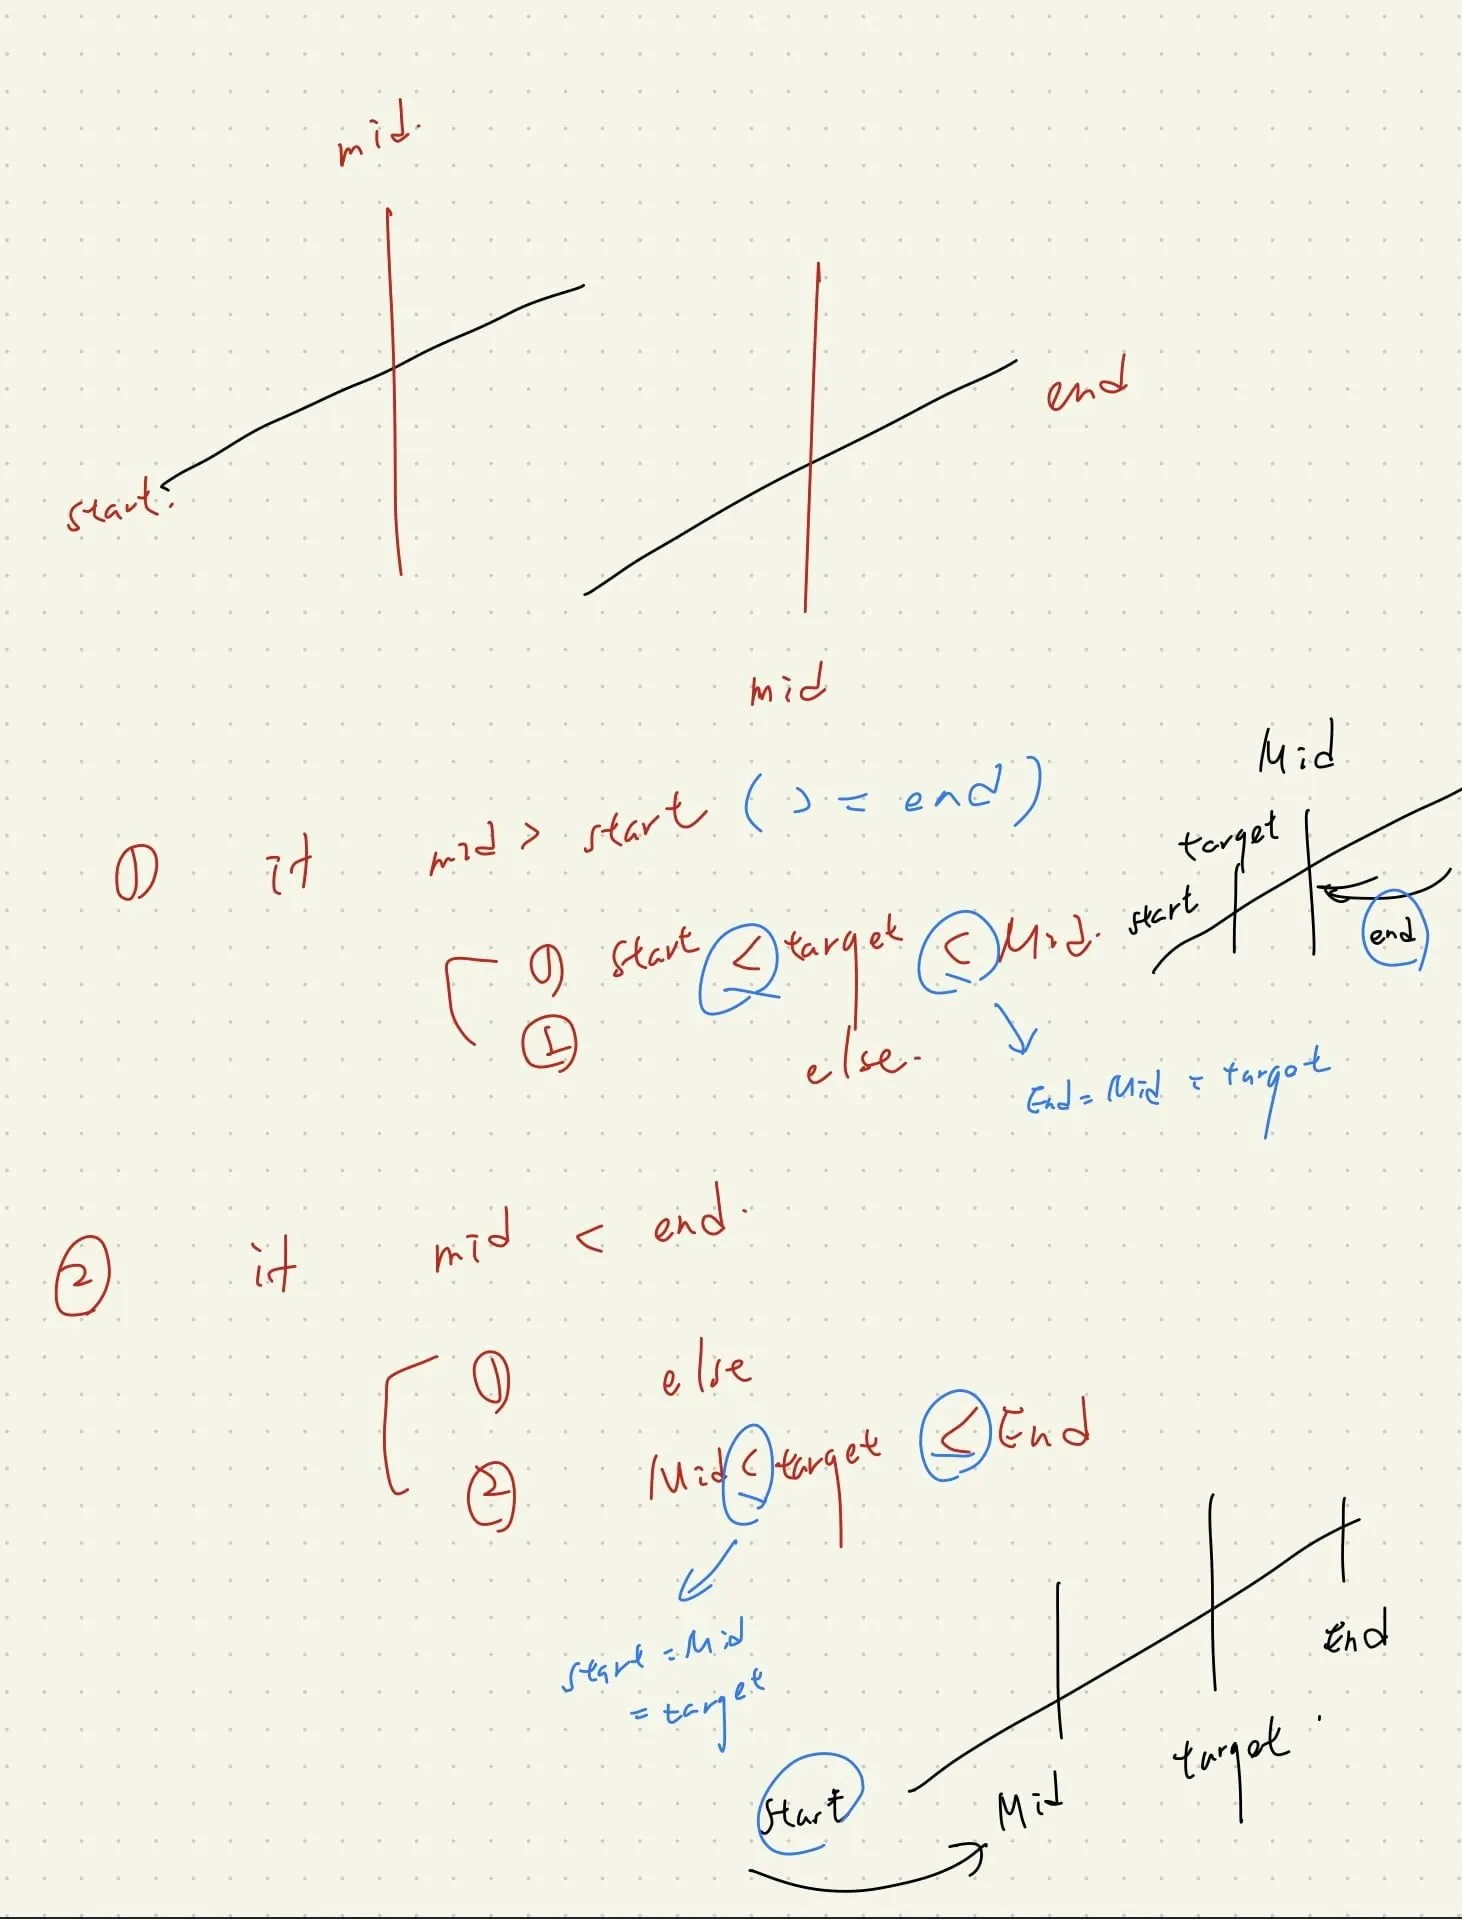 mid.
start.
end
mid
Mid
① if mid > start ( > = end )
target
start
end
① start ≤ target ≤ Mid.
① else.
End = Mid = target
② if mid < end.
① else
② Mid ≤ target ≤ End
start = Mid
= target
End
target
Mid
start